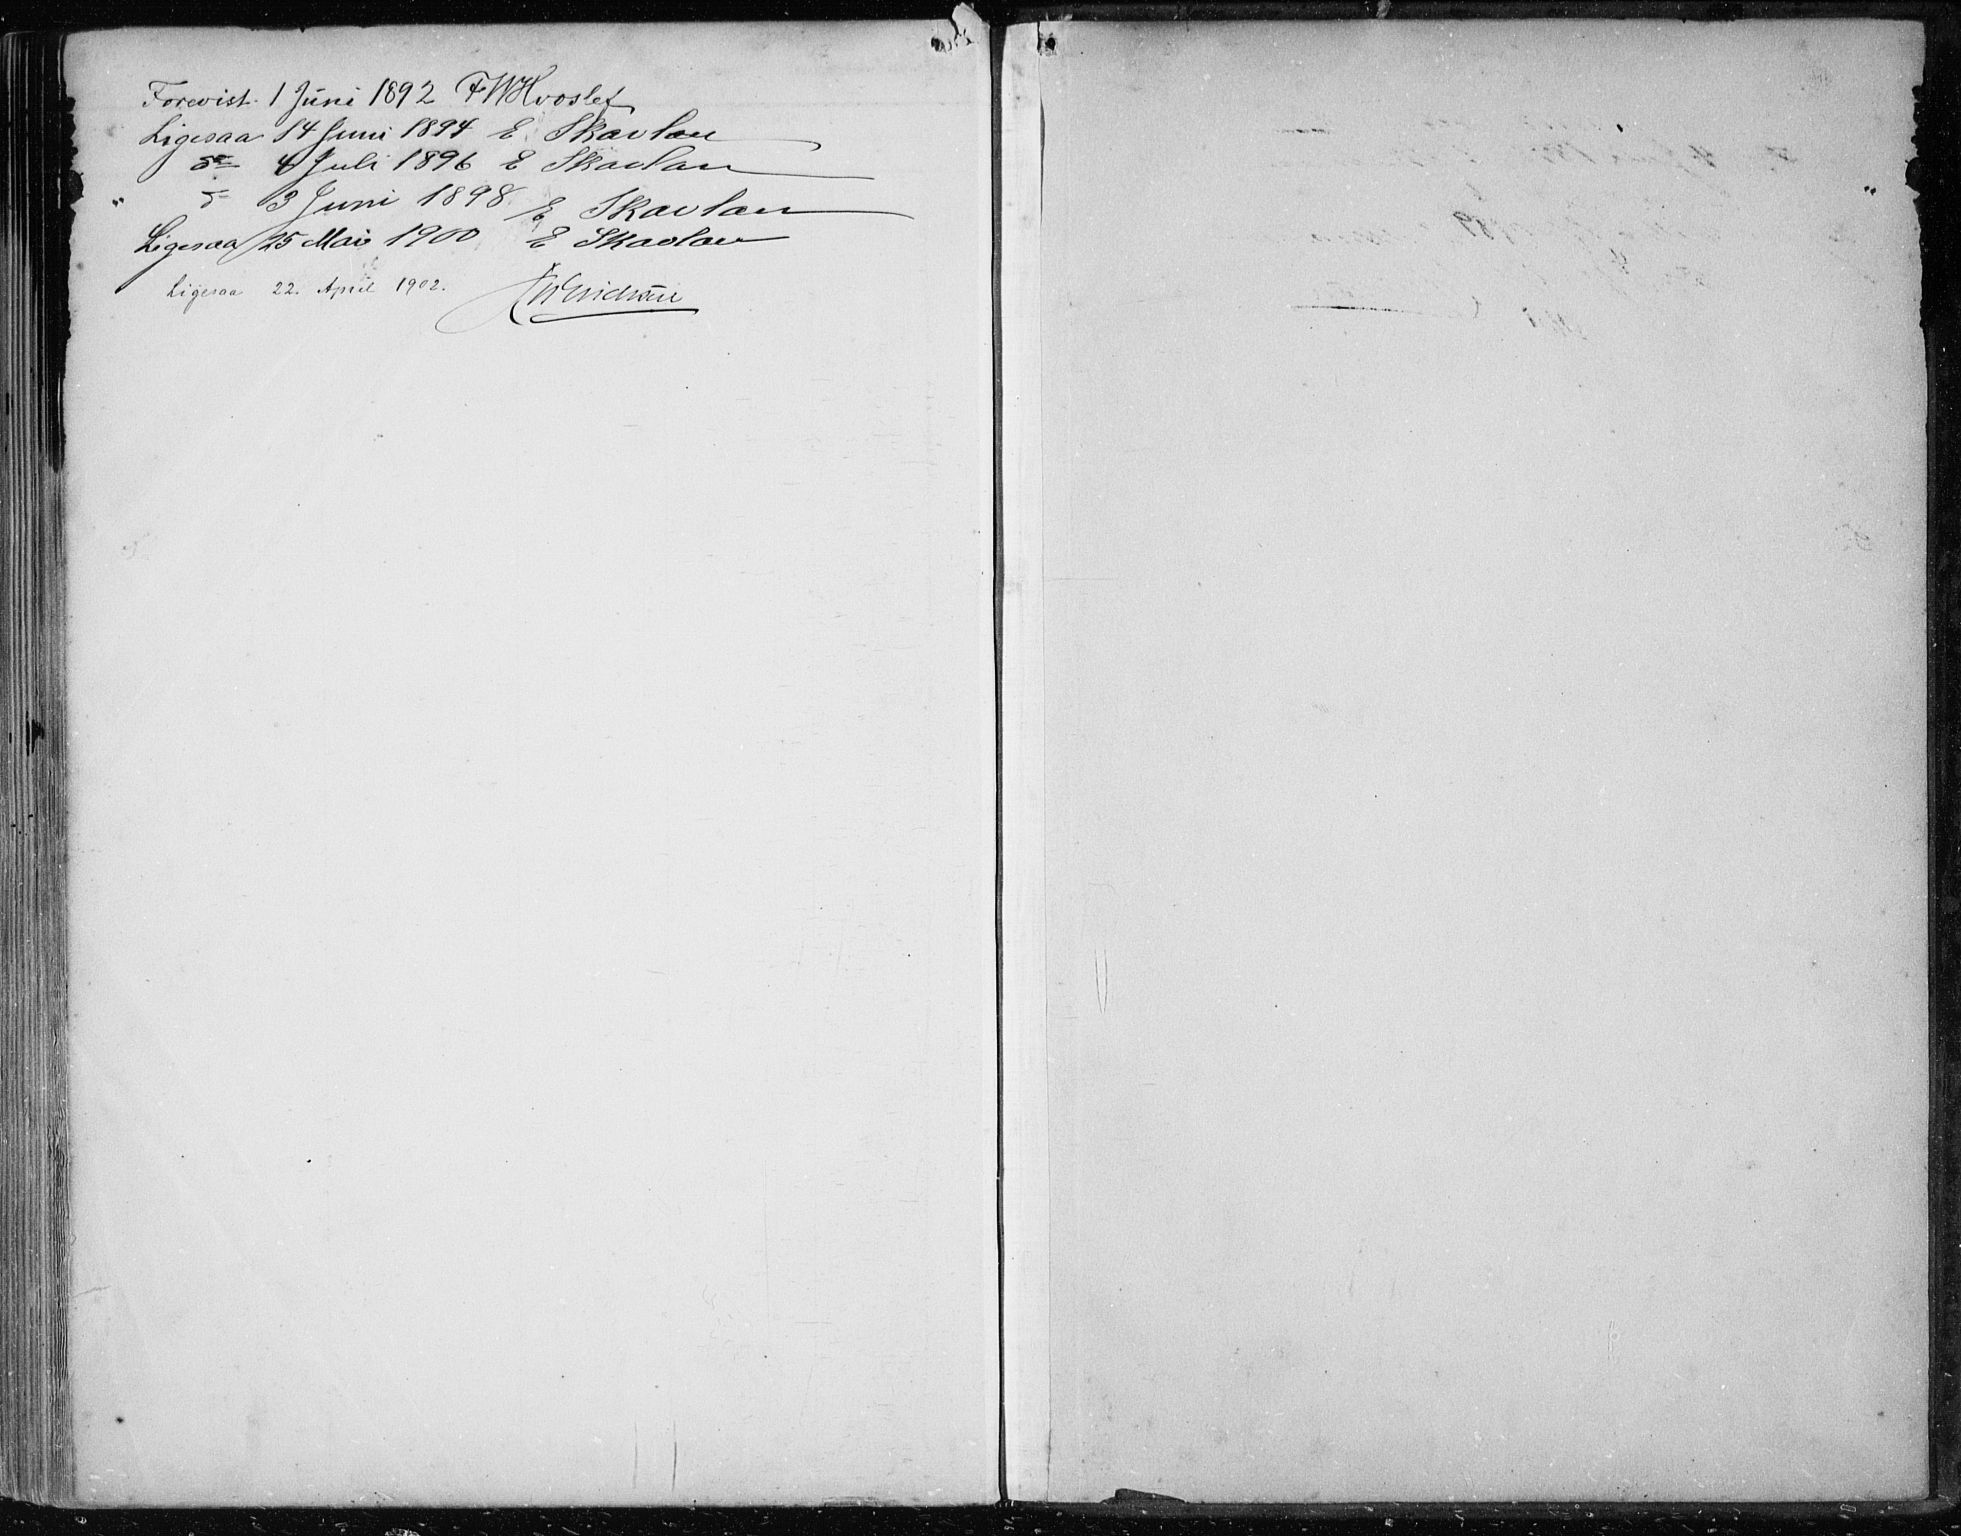 Forevist. 1 Juni 1892 FWHvoslef
Ligesaa 14 Juni 1894 E Skavlan
do 4 Juli 1896 E Skavlan
" do 3 Juni 1898 E Skavlan
Ligesaa 25 Mai 1900 E Skavlan
Ligesaa 22. April 1902.